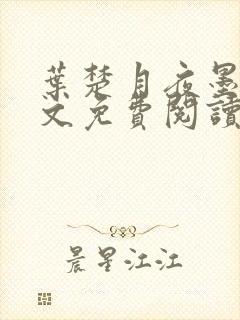 葉楚月夜墨
文免費閱讀
晨星江江